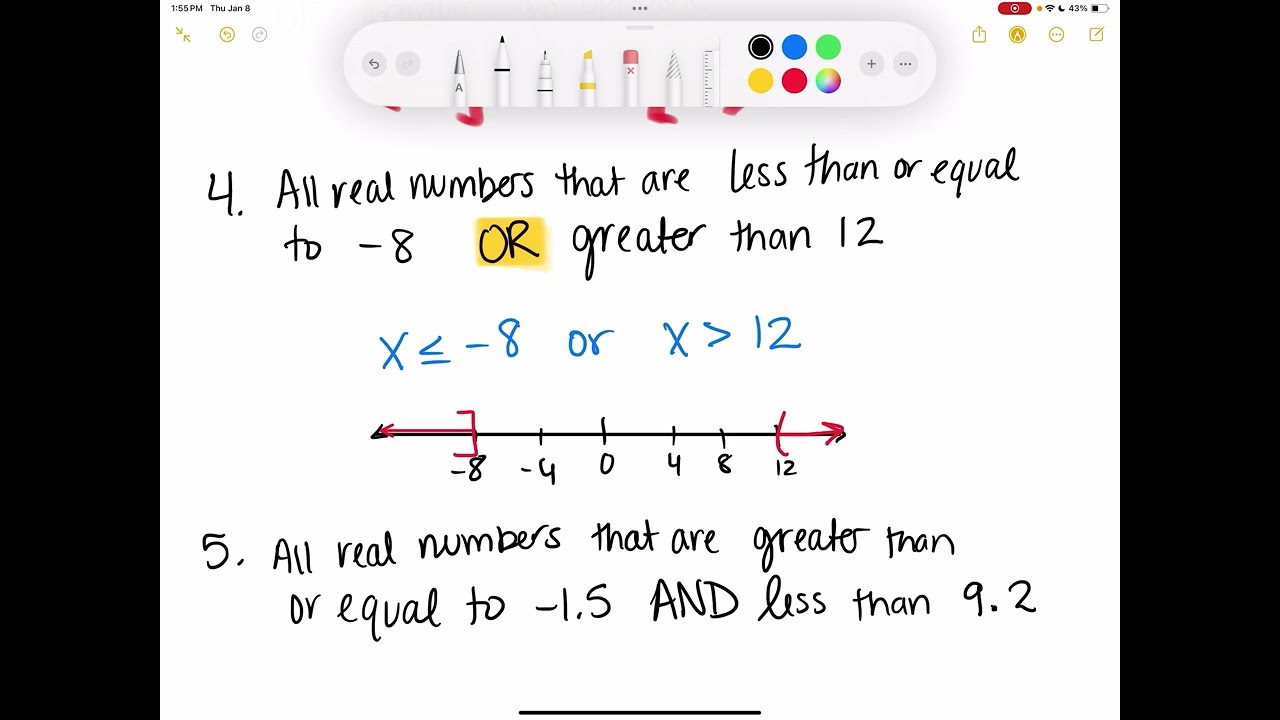 1:55PM Thu Jan 8
43%
A
4. All real numbers that are less than or equal
to -8 OR greater than 12
x ≤ -8 or x > 12
-8 -4 0 4 8 12
5. All real numbers that are greater than
or equal to -1.5 AND less than 9.2